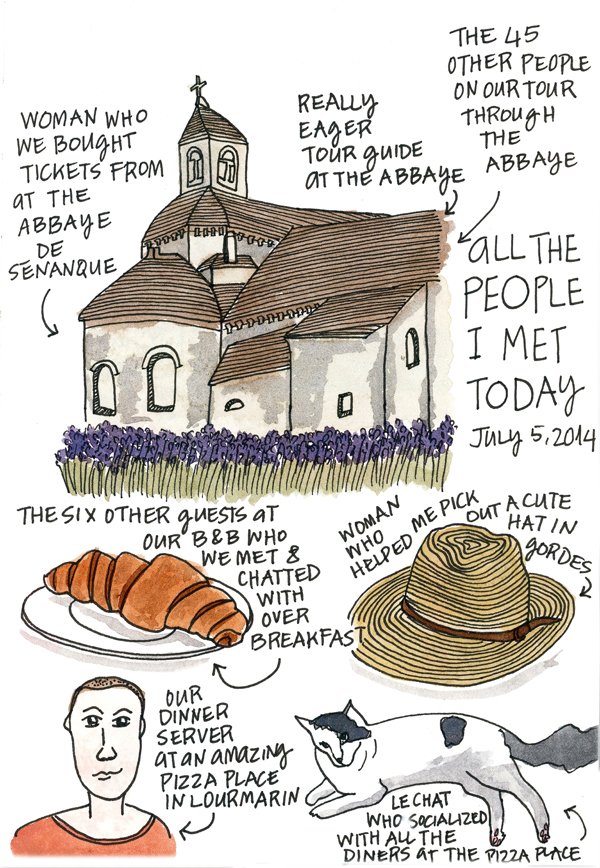 WOMAN WHO
WE BOUGHT
TICKETS FROM
AT THE
ABBAYE
DE
SENANQUE
REALLY
EAGER
TOUR GUIDE
AT THE ABBAYE
THE 45
OTHER PEOPLE
ON OUR TOUR
THROUGH
THE
ABBAYE
ALL THE
PEOPLE
I MET
TODAY
JULY 5, 2014
THE SIX OTHER GUESTS AT
OUR B&B WHO
WE MET &
CHATTED
WITH
OVER
BREAKFAST
WOMAN
WHO
HELPED ME PICK
OUT A CUTE
HAT IN
GORDES
OUR
DINNER
SERVER
AT AN AMAZING
PIZZA PLACE
IN LOURMARIN
LE CHAT
WHO SOCIALIZED
WITH ALL THE
DINERS AT THE PIZZA PLACE